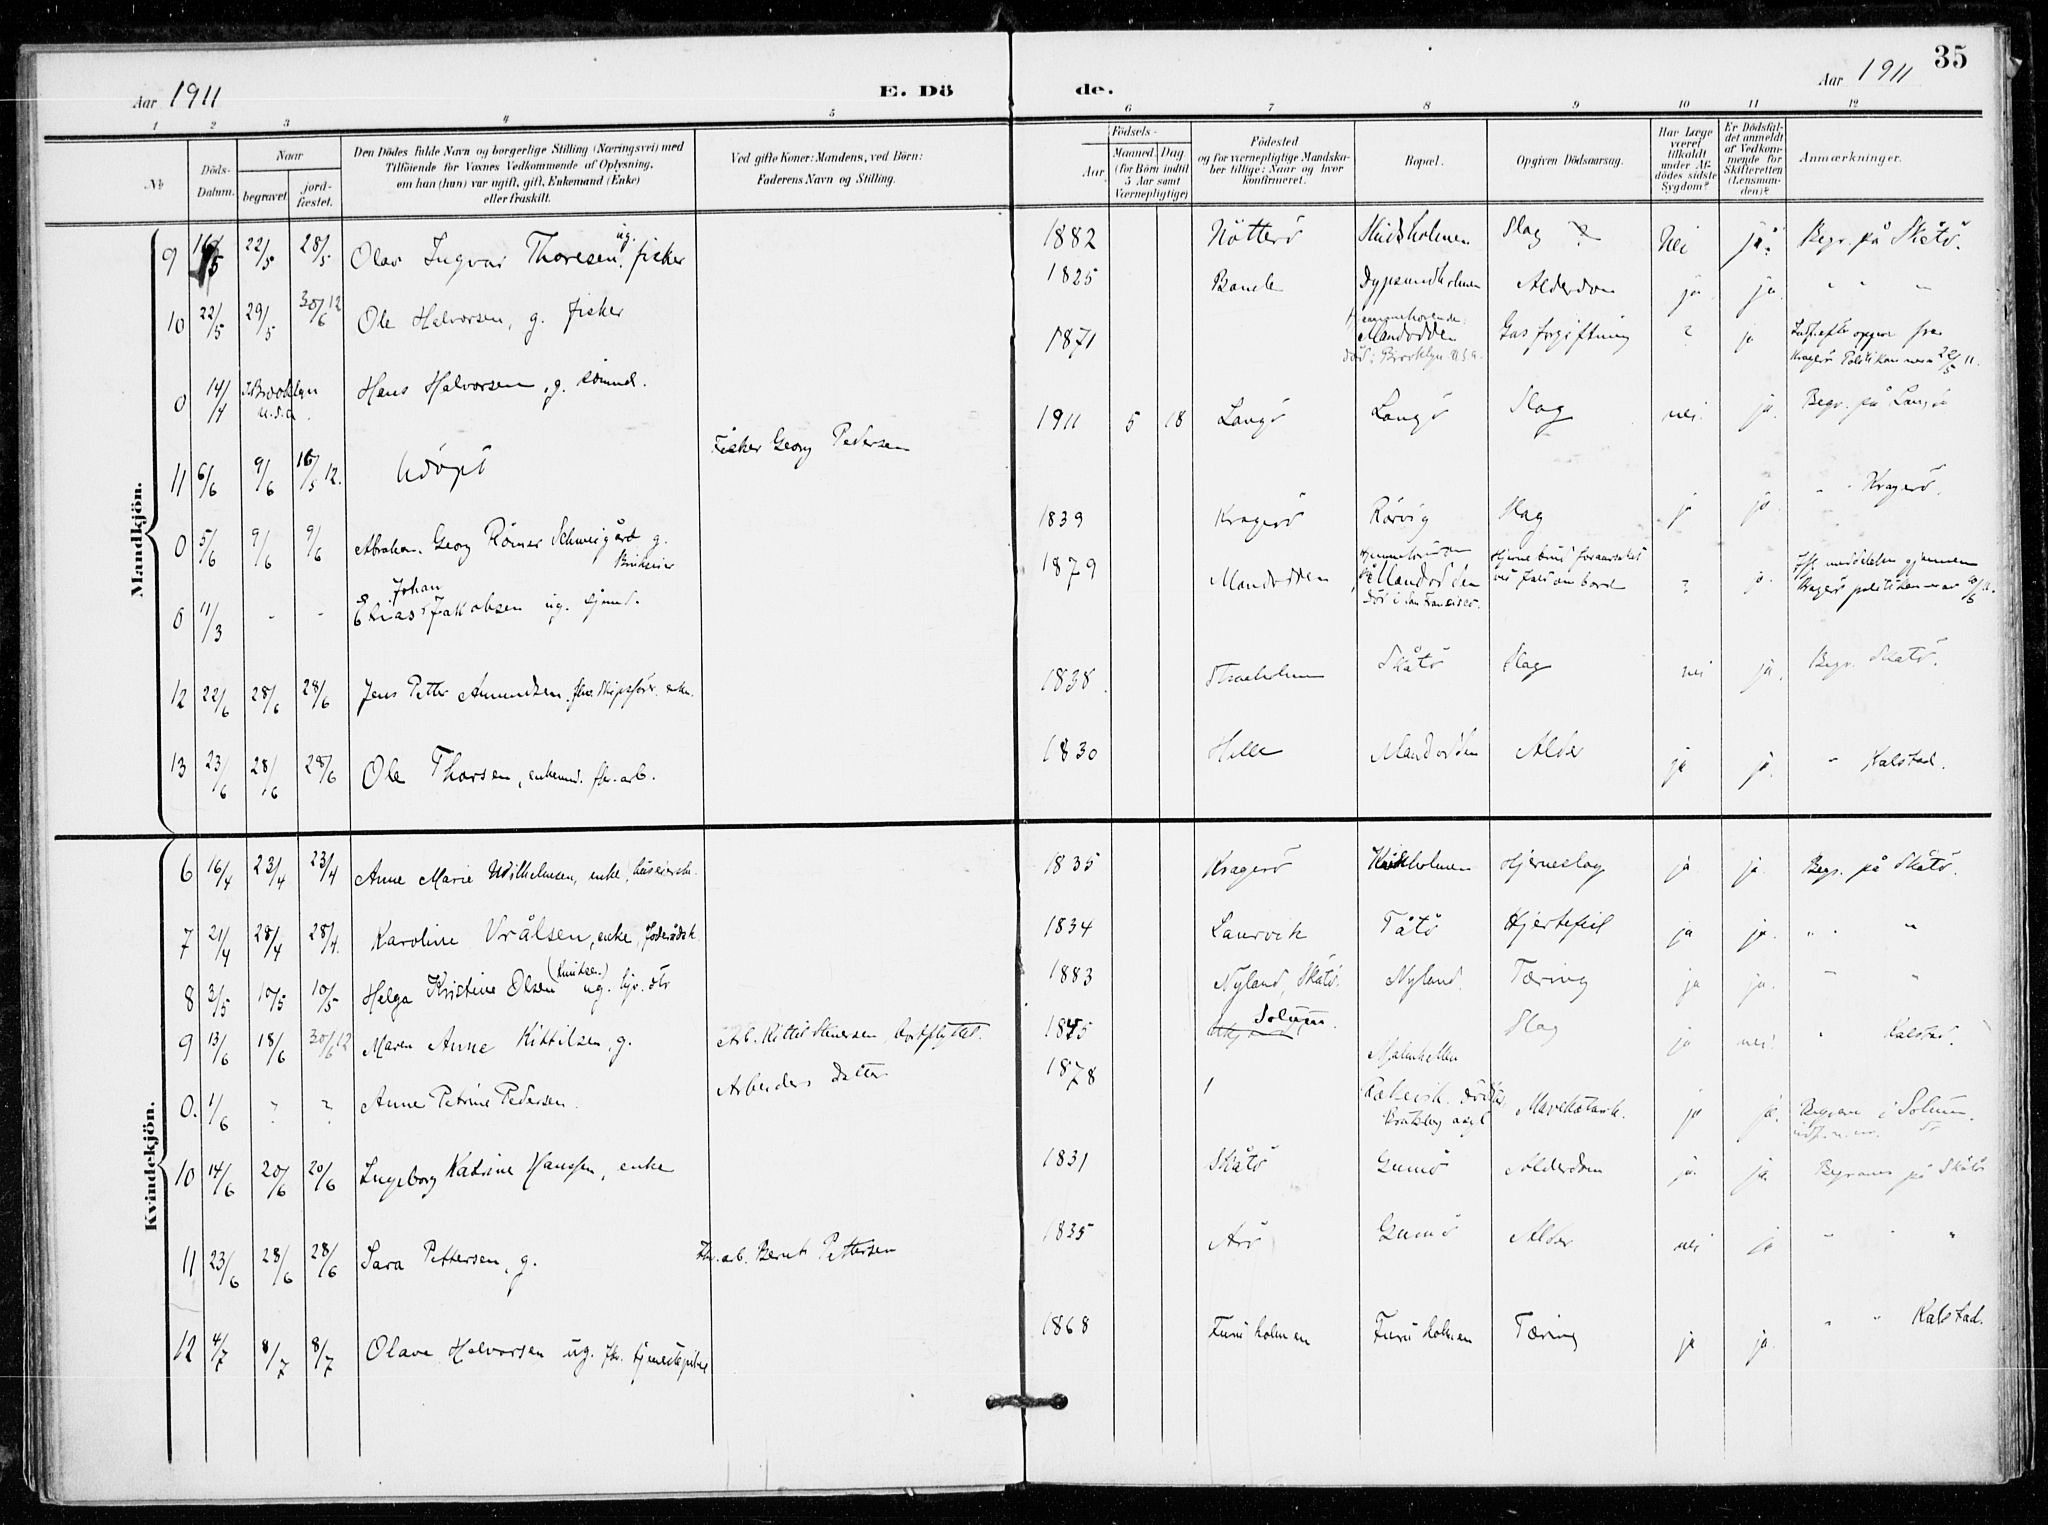 35
Aar 1911
E. Dö
de.
Aar 1911
1 2 3 4 5 6 7 8 9 10 11 12
№
Döds-
Datum.
Naar
begravet
jord-
fæstet.
Den Dödes fulde Navn og borgerlige Stilling (Næringsvei) med
Tilföiende for Voxnes Vedkommende af Oplysning,
om han (hun) var ugift, gift, Enkemand (Enke)
eller fraskilt.
Ved gifte Koner: Mandens, ved Börn:
Faderens Navn og Stilling.
Födsels-
Aar.
Maaned. Dag
(for Börn indtil
5 Aar samt
Værnepligtige)
Födested
og for værnepligtige Mandska-
ber tillige: Naar og hvor
konfirmeret.
Bopæl.
Opgiven Dödsaarsag.
Har Læge
været
tilkaldt
under Af-
dödes sidste
Sygdom?
Er Dödsfal-
det anmeldt
af Vedkom-
mende for
Skifteretten
(Lensman-
den)?
Anmærkninger.
Mandkjön.
9 22/5 28/5 Olav Ingvar Thoresen, ug. fisker 1882 Nötterö Skidsholmen Slag ? Nei ja. Begr. på Skåtö.
10 22/5 29/5 30/6 12 Ole Halvorsen, g. fisker 1825 Bamle Dypsundholmen Alderdom ja ja " " "
0 14/4 i Brooklyn U.S.A. Hans Halvorsen, g. sömnd. 1871 Hjemmehörende: Mandodden död i Brooklyn U.S.A. Gasforgiftning ? ja Indf. efter opgave fra Kragerö Politikammer 22/5 11.
11 6/6 9/6 16/5 12. Udöpt Fisker Georg Pedersen 1911 5 18 Langö Langö Slag nei. ja. Begr. på Langö
0 5/6 9/6 9/6 Abraham Georg Römer Schweigård g. 1839 Kragerö Rörvig Slag ja ja " " Kragerö.
0 11/3 - - Elias Johan Jakobsen ug. sjömd. 1879 Mandodden Hjemmehörende på Mandodden Död i San Francisco. ved fald ombord ? ja. Ifl. meddelelse gjennem Kragerö politikammer
12 22/6 28/6 28/6 Jens Petter Amundsen, fhv. skipsförer. enkm. 1838 Skåtö Slag nei ja. Begr. Skåtö.
13 23/6 28/6 28/6 Ole Thorsen, enkemd. fhv. arb. 1830 Helle Mandodden Alder ja ja. " Kalstad.
Kvindekjön.
6 16/4 23/4 23/4 Anne Marie Wilhelmsen, enke, 1835 Kragerö Hjerneslag ja ja. Begr. på Skåtö.
7 21/4 28/4 28/4. Karoline Vrålsen, enke, föderådsk. 1834 Laurvik Tåtö Hjertefeil ja ja. " " "
8 3/5 10/5 10/5 Helga Kristine Olsen (Knutsen) ug. hjv. dtr 1883 Nyland, Skåtö. Nyland. Tæring ja ja. " "
9 13/6 18/6 30/6 12 Maren Anne Kittilsen, g. Arb. Kittil Steinersen, bortflyttet. 1845 Solum. Slag ja nei. " Kalstad.
0. 1/6 ? ? Anne Petrine Pedersen. Arbeiders datter 1878 Bratsberg asyl Mavekatarrh. ja ja. Begravet i Solum.
10 14/6 20/6 20/6 Ingeborg Katrine Hanssen, enke 1831 Skåtö Gumö Alderdom ja. ja. Begraves på Skåtö
11 23/6 28/6 28/6 Sara Pettersen, g. Fhv. arb. Bernt Pettersen 1835 Arö Gumö Alder nei ja " " "
12 4/7 8/7 8/7 Olava Halvorsen ug. fhv. tjenestepike 1868 Furuholmen Furuholmen Tæring ja ja. " " Kalstad.